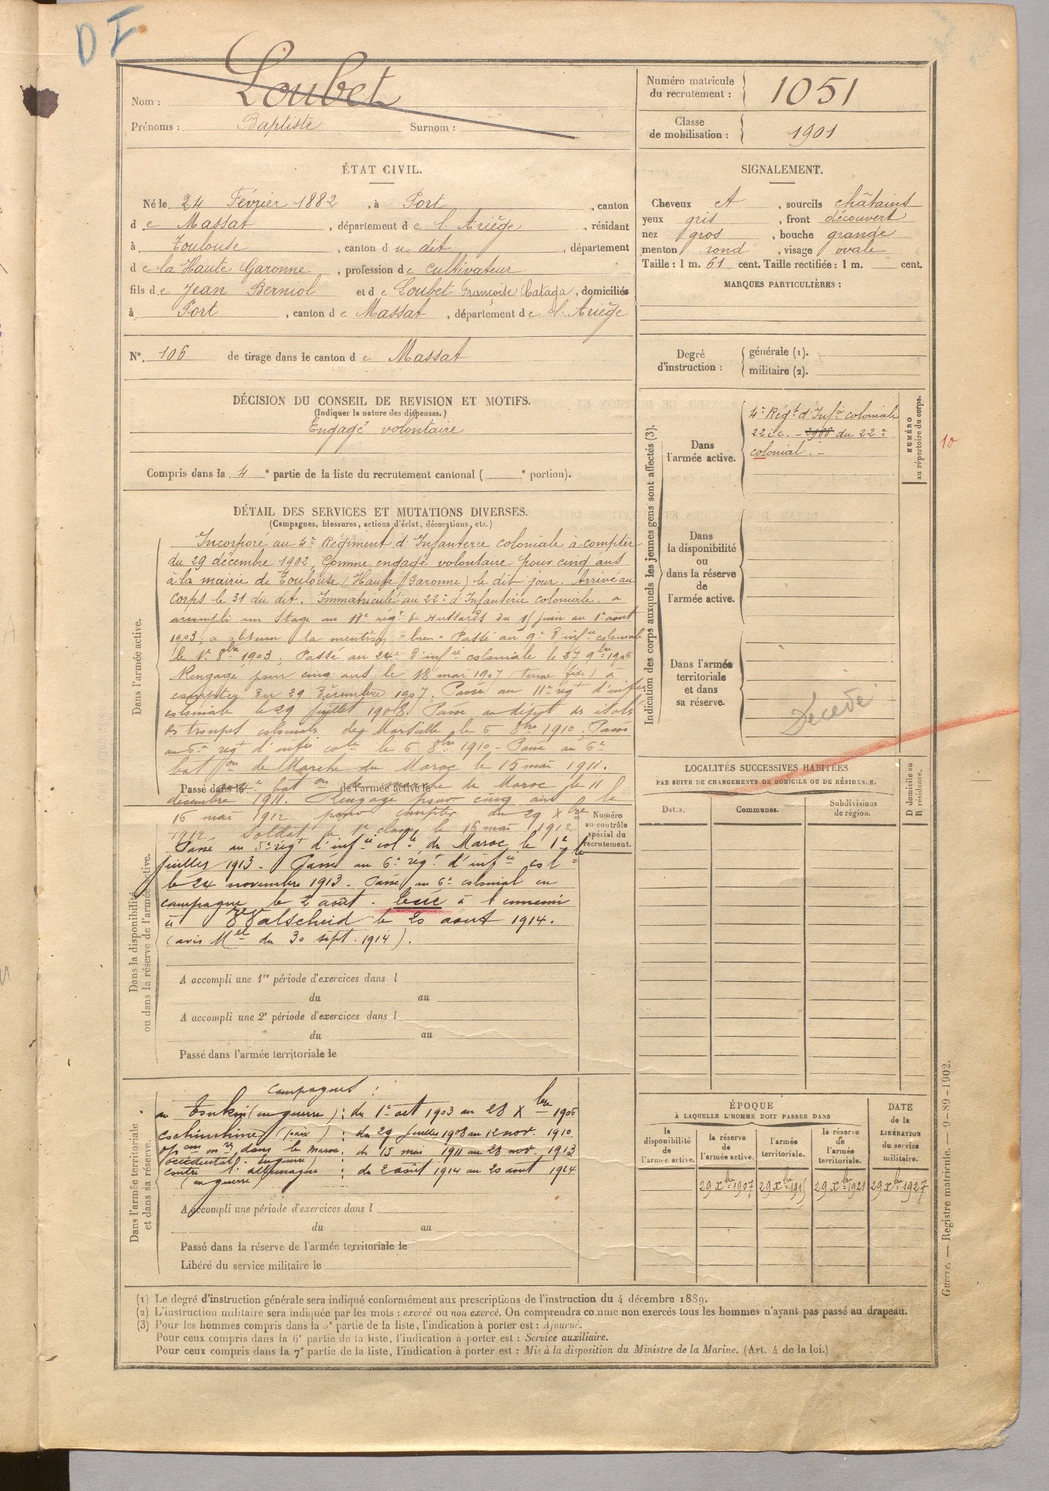 DF
Nom : Loubet
Prénoms : Baptiste Surnom :
Numéro matricule du recrutement : 1051
Classe de mobilisation : 1901
ÉTAT CIVIL.
Né le 24 Février 1882, à Port, canton
de Massat, département de l'Ariège, résidant
à Toulouse, canton du dit, département
de la Haute Garonne, profession de Cultivateur
fils de Jean Berniol et de Loubet Françoise, domiciliés
à Port, canton de Massat, département de l'Ariège
N°. 106 de tirage dans le canton de Massat
SIGNALEMENT.
Cheveux et, sourcils châtains
yeux gris, front découvert
nez gros, bouche grande
menton rond, visage ovale
Taille : 1 m. 61 cent. Taille rectifiée : 1 m. cent.
MARQUES PARTICULIÈRES :
Degré d'instruction : générale (1).
militaire (2).
DÉCISION DU CONSEIL DE REVISION ET MOTIFS.
(Indiquer la nature des dispenses.)
Engagé volontaire
Compris dans la 4e partie de la liste du recrutement cantonal ( e portion).
DÉTAIL DES SERVICES ET MUTATIONS DIVERSES.
(Campagnes, blessures, actions d'éclat, décorations, etc.)
Dans l'armée active.
Incorporé au 4e Régiment d'Infanterie coloniale à compter
du 29 décembre 1902. Comme engagé volontaire pour cinq ans
à la mairie de Toulouse (Haute Garonne) le dit jour. Arrivé au
corps le 31 du dit. Immatriculé au 22e d'Infanterie coloniale. a
accompli un stage au 11e régt de Hussards du 1er juin au 1er août
1903, a obtenu la mention "bien" Passé au 9e d'infie coloniale
le 1er 8bre 1903. Passé au 24e d'infie coloniale le 27 9bre 1906
Rengagé pour cinq ans le 18 mai 1907 à
compter du 29 Décembre 1907. Passé au 11e régt d'infie
coloniale le 29 juillet 1908. Passé au dépôt des isolés
des troupes coloniales de Marseille le 6 8bre 1910. Passé
au 6e régt d'infie cole le 6 8bre 1910. Passé au 6e
batfon de Marche du Maroc le 15 mai 1911.
Passé dans la de l'armée active le
bat on de marche du Maroc le 11
décembre 1911. Rengagé pour cinq ans le
16 mai 1912 pour compter du 29 Xbre
1912. Soldat de 1e classe le 16 mai 1912
Passé au 5e régt d'infie cole du Maroc le 1er
juillet 1913. Passé au 6e régt d'infie cole
le 24 novembre 1913. Passé au 6e colonial en
campagne le 2 août. tué à l'ennemi
à Walscheid le 20 aout 1914.
(avis Mel du 30 sept. 1914).
Numéro au contrôle spécial du recrutement.
Dans la disponibilité ou dans la réserve de l'armée active.
A accompli une 1re période d'exercices dans l
du au
A accompli une 2e période d'exercices dans l
du au
Passé dans l'armée territoriale le
Dans l'armée territoriale et dans sa réserve.
Campagnes :
au Tonkin (en guerre) : du 1er oct 1903 au 28 Xbre 1906
Cochinchine (paix) : du 29 juillet 1908 au 12 nov. 1910
opons mres dans le maroc : du 15 mai 1911 au 28 nov. 1913
occidental - en guerre
contre l'allemagne : du 2 août 1914 au 20 aout 1914
(en guerre)
Accompli une période d'exercices dans l
du au
Passé dans la réserve de l'armée territoriale le
Libéré du service militaire le
Indication des corps auxquels les jeunes gens sont affectés (3).
NUMÉRO au répertoire du corps.
Dans l'armée active.
4e Régt d'Infie coloniale
22e ic. - du 22e
colonial. -
10
Dans la disponibilité ou dans la réserve de l'armée active.
Dans l'armée territoriale et dans sa réserve.
Décédé
LOCALITÉS SUCCESSIVES HABITÉES
PAR SUITE DE CHANGEMENTS DE DOMICILE OU DE RÉSIDENCE.
Dates. Communes. Subdivisions de région. D domicile ou R résidence.
ÉPOQUE
À LAQUELLE L'HOMME DOIT PASSER DANS
DATE de la LIBÉRATION du service militaire.
la disponibilité de l'armée active.
la réserve de l'armée active.
l'armée territoriale.
la réserve de l'armée territoriale.
29 Xbre 1907 29 Xbre 1915 29 Xbre 1921 29 Xbre 1927
Guerre. — Registre matricule. — 9-89-1902.
(1) Le degré d'instruction générale sera indiqué conformément aux prescriptions de l'instruction du 4 décembre 1889.
(2) L'instruction militaire sera indiquée par les mots : exercé ou non exercé. On comprendra comme non exercés tous les hommes n'ayant pas passé au drapeau.
(3) Pour les hommes compris dans la 5e partie de la liste, l'indication à porter est : Ajourné.
Pour ceux compris dans la 6e partie de la liste, l'indication à porter est : Service auxiliaire.
Pour ceux compris dans la 7e partie de la liste, l'indication à porter est : Mis à la disposition du Ministre de la Marine. (Art. 4 de la loi.)